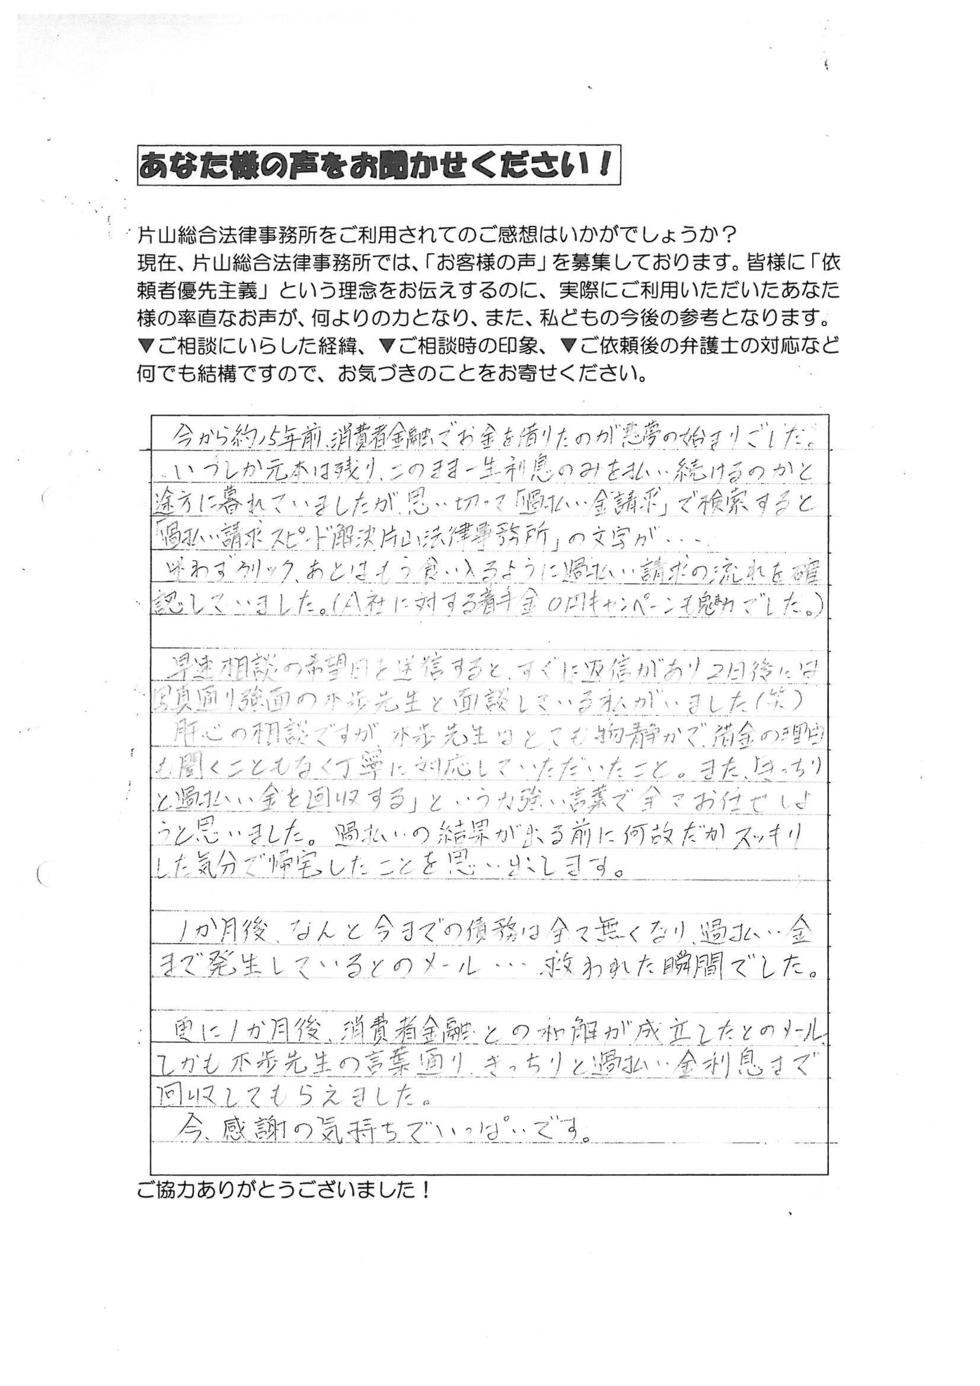 あなた様の声をお聞かせください！
片山総合法律事務所をご利用されてのご感想はいかがでしょうか？
現在、片山総合法律事務所では、「お客様の声」を募集しております。皆様に「依
頼者優先主義」という理念をお伝えするのに、実際にご利用いただいたあなた
様の率直なお声が、何よりの力となり、また、私どもの今後の参考となります。
▼ご相談にいらした経緯、▼ご相談時の印象、▼ご依頼後の弁護士の対応など
何でも結構ですので、お気づきのことをお寄せください。
今から約15年前、消費者金融でお金を借りたのが悪夢の始まりでした。
いつしか元本は残り、このまま一生利息のみを払い続けるのかと
途方に暮れていましたが、思い切って「過払い金請求」で検索すると
「過払い請求スピード解決片山法律事務所」の文字が・・・
迷わずクリック、あとはもう食い入るように過払い請求の流れを確
認していました。（A社に対する着手金0円キャンペーンも魅力でした。）
早速相談の希望日を送信すると、すぐに返信があり2日後には
写真通り強面の木歩先生と面談している私がいました（笑）
肝心の相談ですが、木歩先生はとても物静かで、借金の理由
も聞くこともなく丁寧に対応していただいたこと。また、「きっちり
と過払い金を回収する」という力強い言葉で全てお任せしよ
うと思いました。過払いの結果が出る前に何故だかスッキリ
した気分で帰宅したことを思い出します。
1か月後、なんと今までの債務は全て無くなり、過払い金
まで発生しているとのメール・・・救われた瞬間でした。
更に1か月後、消費者金融との和解が成立したとのメール、
しかも木歩先生の言葉通り、きっちりと過払い金利息まで
回収してもらえました。
今、感謝の気持ちでいっぱいです。
ご協力ありがとうございました！